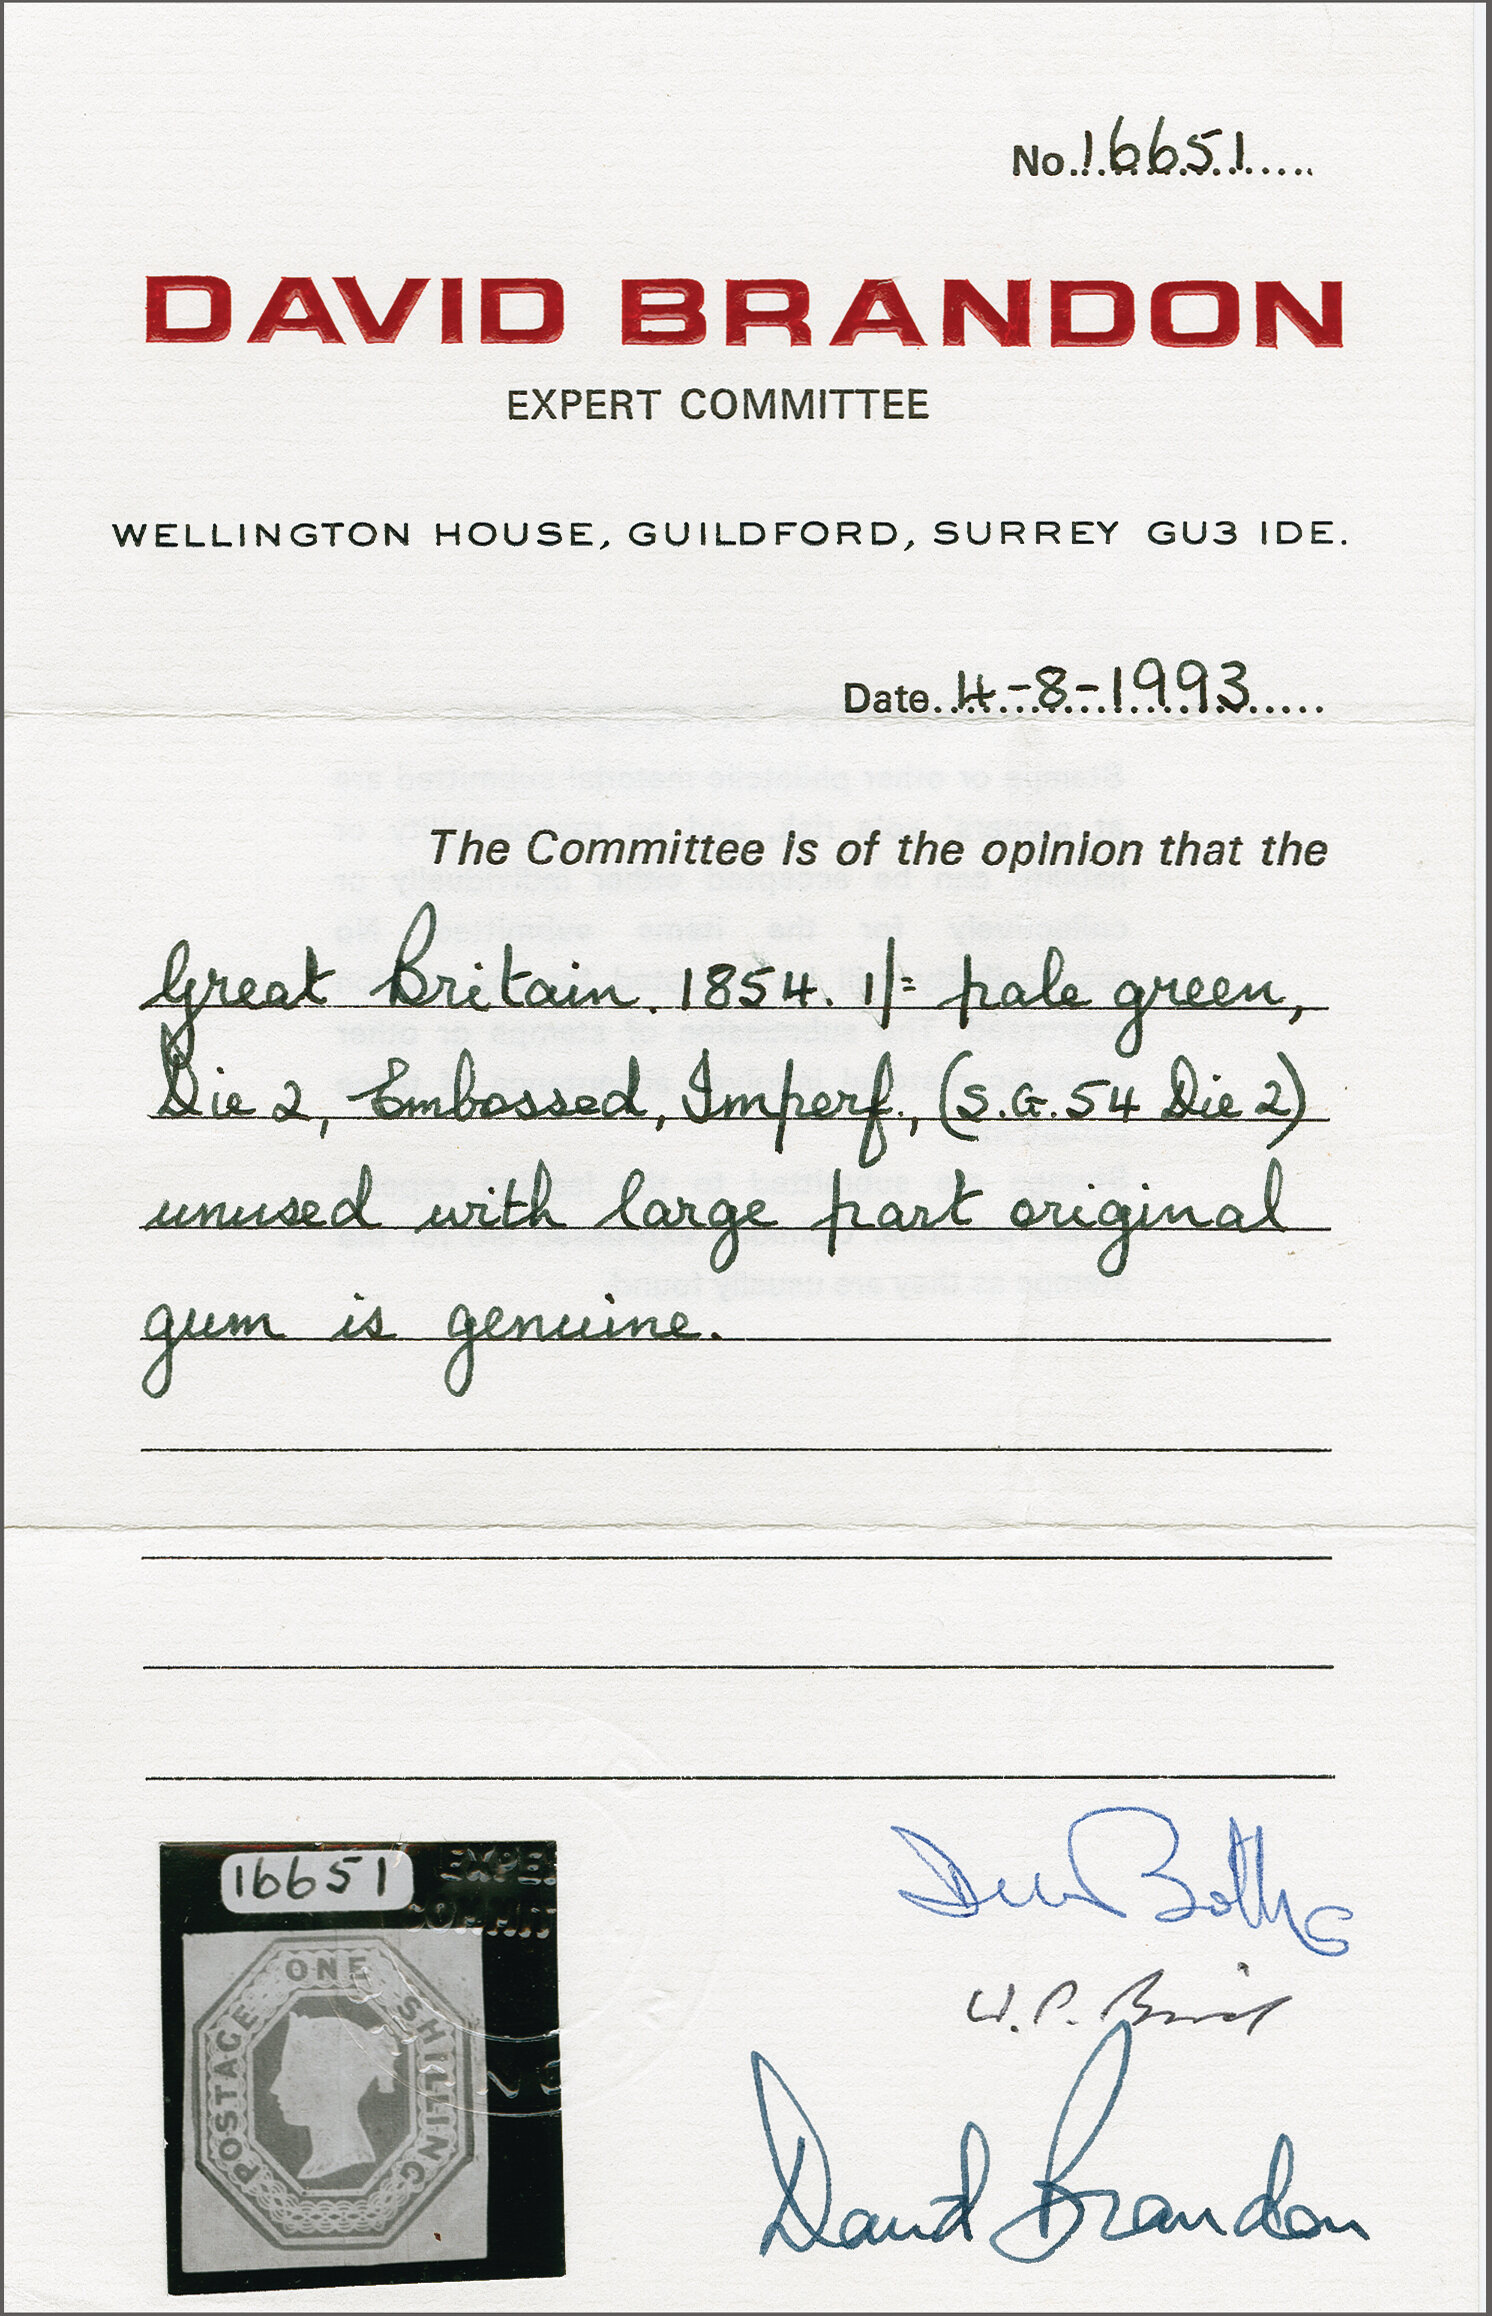 No. 16651
DAVID BRANDON
EXPERT COMMITTEE
WELLINGTON HOUSE, GUILDFORD, SURREY GU3 1DE.
Date 4-8-1993
The Committee is of the opinion that the
Great Britain. 1854. 1/= pale green,
Die 2, Embossed, Imperf., (S.G.54 Die 2)
unused with large part original
gum is genuine.
16651
EXPE
COMMIT
ONE SHILLING
POSTAGE
W. P.
David Brandon